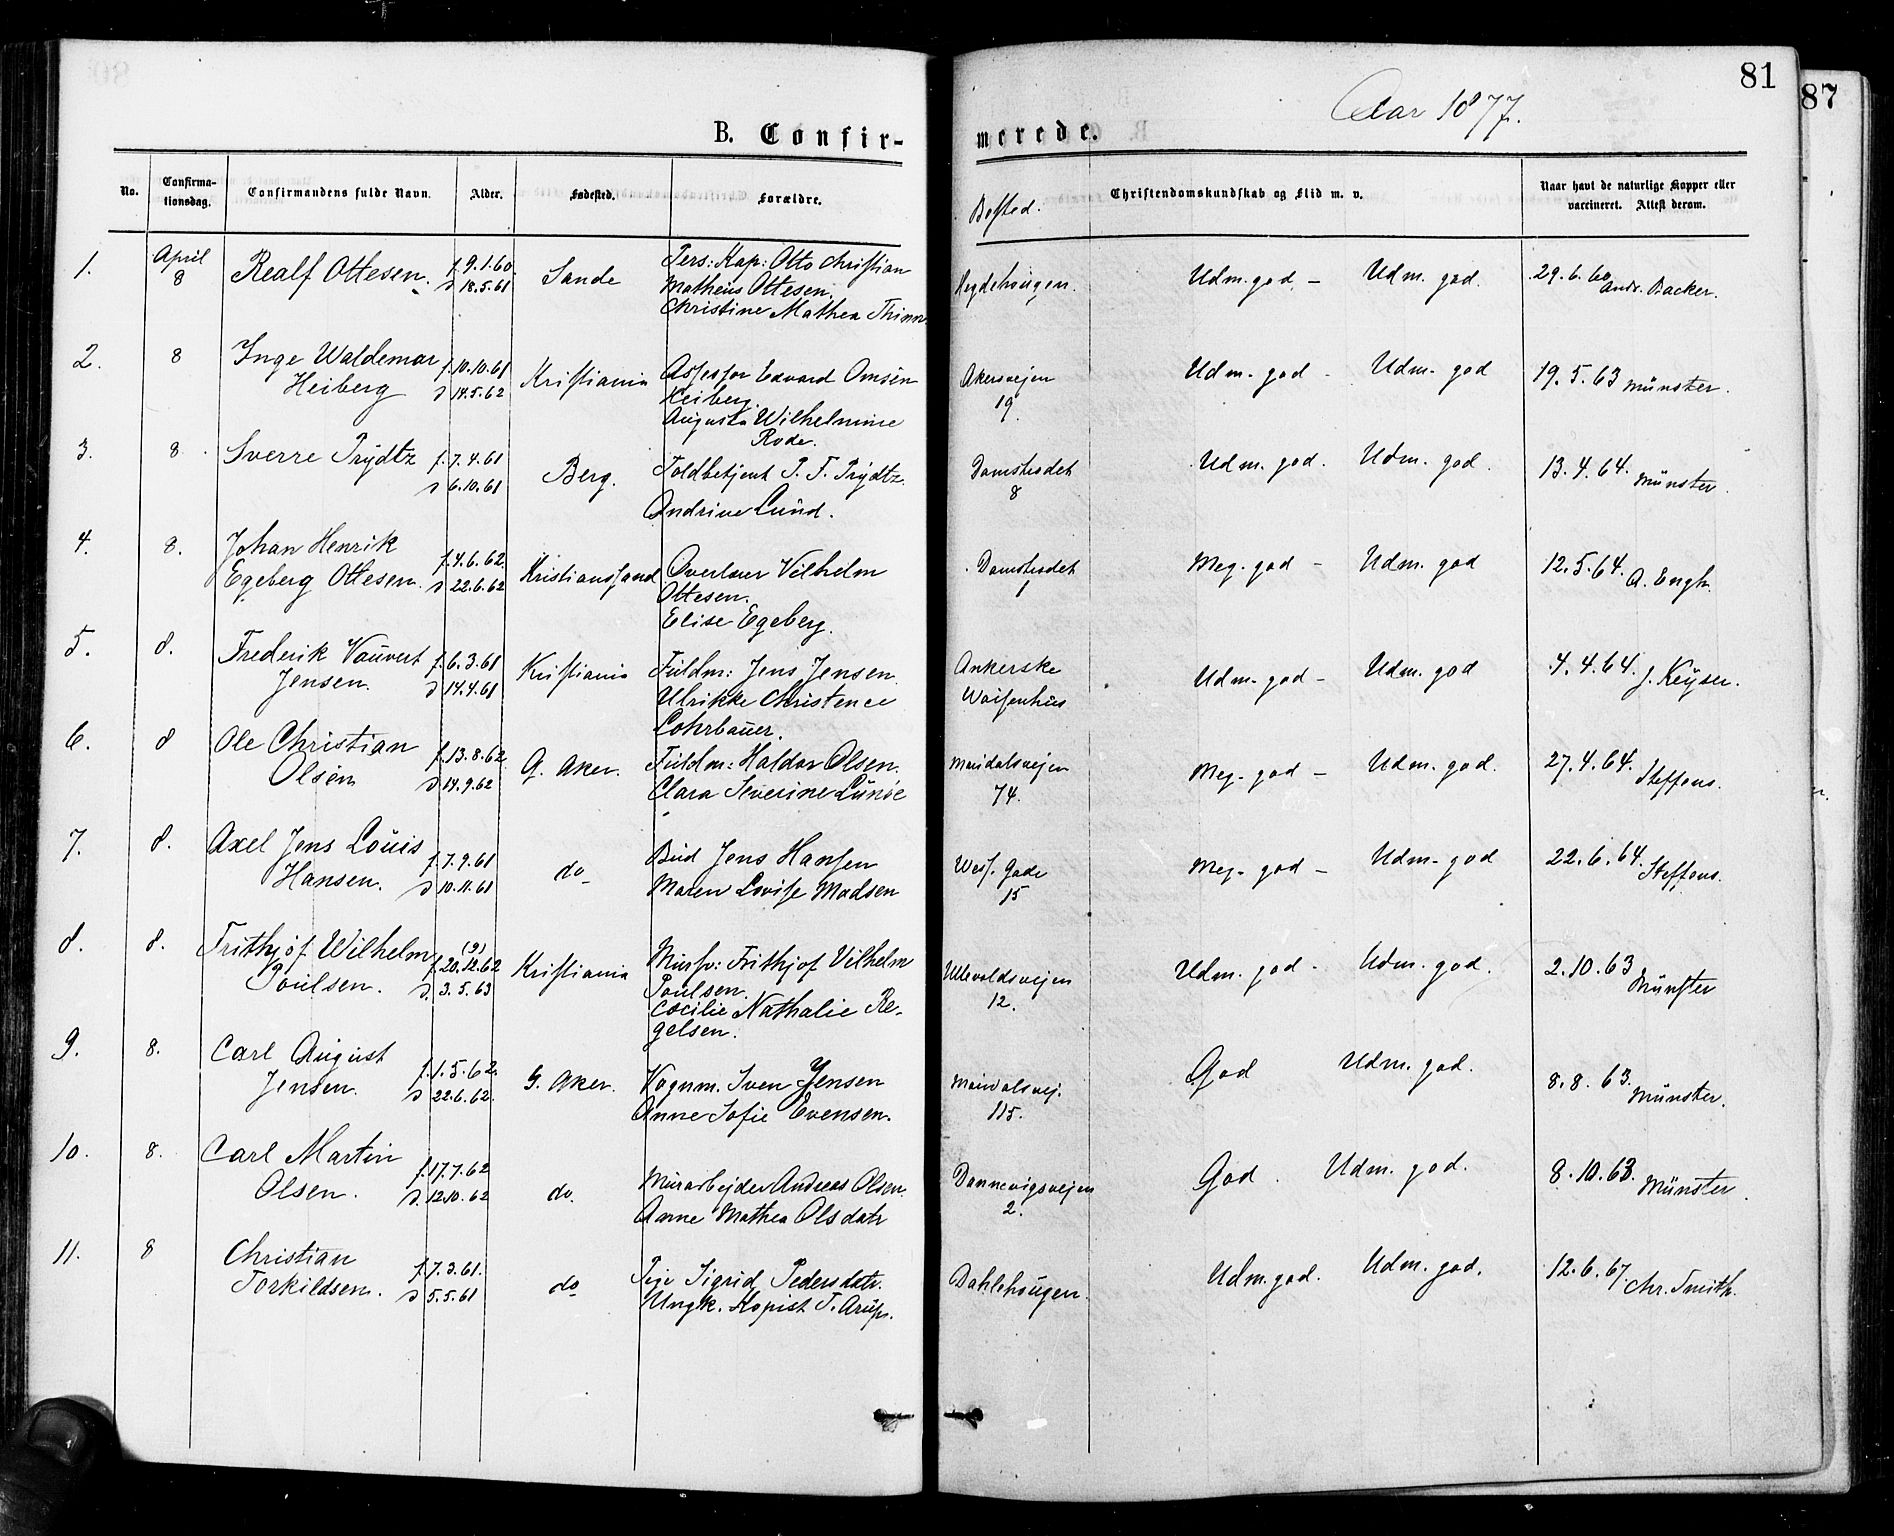 81
87
Aar 1877.
B. Confir-
merede.
No.
Confirma-
tionsdag.
Confirmandens fulde Navn.
Alder.
Fødested.
Forældre.
Bosted.
Christendomskundskab og Flid m. v.
Naar havt de naturlige Kopper eller
vaccineret. Attest derom.
1.
April
8
Realf Ottesen.
f. 9.1.60.
d 18.5.61
Sande
Pers: Kap: Otto Christian
Matheus Ottesen.
Christine Mathea Thinn
Hegdehougen.
Udm. god. – Udm. god.
29.6.60 Andr. Backer.
2.
8
Inge Waldemar
Heiberg
f. 10.10.61
d 14.5.62
Kristiania
Assessor Edvard Omsén
Heiberg.
Augusta Wilhelmine
Rode.
Akersvejen
19.
Udm. god – Udm. god
19.5.63 Münster.
3.
8.
Sverre Prydtz
f. 7.4.61
d 6.10.61
Berg.
Toldbetjent P. F. Prydtz.
Andrine Lund.
Damstredet
8
Udm. god. Udm. god.
13.4.64. Münster.
4.
8.
Johan Henrik
Egeberg Ottesen.
f. 4.6.62.
d 22.6.62
Kristianssand
Overlærer Vilhelm
Ottesen.
Elise Egeberg.
Damstredet
1
Meg. god – Udm. god
12.5.64. A. Engh.
5.
8.
Frederik Vauvert
Jensen.
f. 6.3.61
d 14.4.61
Kristiania
Fuldm: Jens Jensen.
Ulrikke Christence
Lohrbauer.
Ankerske
Waisenhus
Udm. god – Udm. god
4.4.64. J. Keyser.
6.
8
Ole Christian
Olsen
f. 13.8.62.
d 14.9.62
G. Aker.
Fuldm: Haldor Olsen.
Clara Severine Lunde
Maridalsvejen
74.
Meg. god – Udm. god.
27.4.64. Steffens.
7.
8.
Axel Jens Louis
Hansen.
f. 7.9.61
d 10.11.61
do
Bud Jens Hansen
Maren Lovise Madsen
Wess. Gade
15
Meg. god – Udm. god
22.6.64. Steffens.
8.
8.
Frithjof Wilhelm
Poulsen.
(9)
f. 20.12.62
d. 3.5.63
Kristiania
Mursv: Frithjof Vilhelm
Poulsen.
Cæcilie Nathalie Re-
gelsen.
Ullevoldsvejen
12.
Udm. god – Udm. god.
2.10.63 Münster
9.
8.
Carl August
Jensen.
f. 1.5.62.
d 22.6.62.
G. Aker.
Vognm. Sven Jensen
Anne Sofie Evensen.
Maridalsvej.
115.
God Udm. god.
8.8.63. Münster.
10.
8.
Carl Martin
Olsen.
f. 17.7.62
d. 12.10.62
do.
Murarbejder Andreas Olsen.
Anne Mathea Olsdatr
Dannevigsvejen
2.
God. Udm. god.
8.10.63. Münster.
11.
8
Christian
Torkildsen.
f. 7.3.61.
d 5.5.61
do
Pige Sigrid Pedersdatr.
Ungk. Kopist T. Arup.
Dahlehougen.
Udm. god. Udm. god.
12.6.67. Chr. Smith.